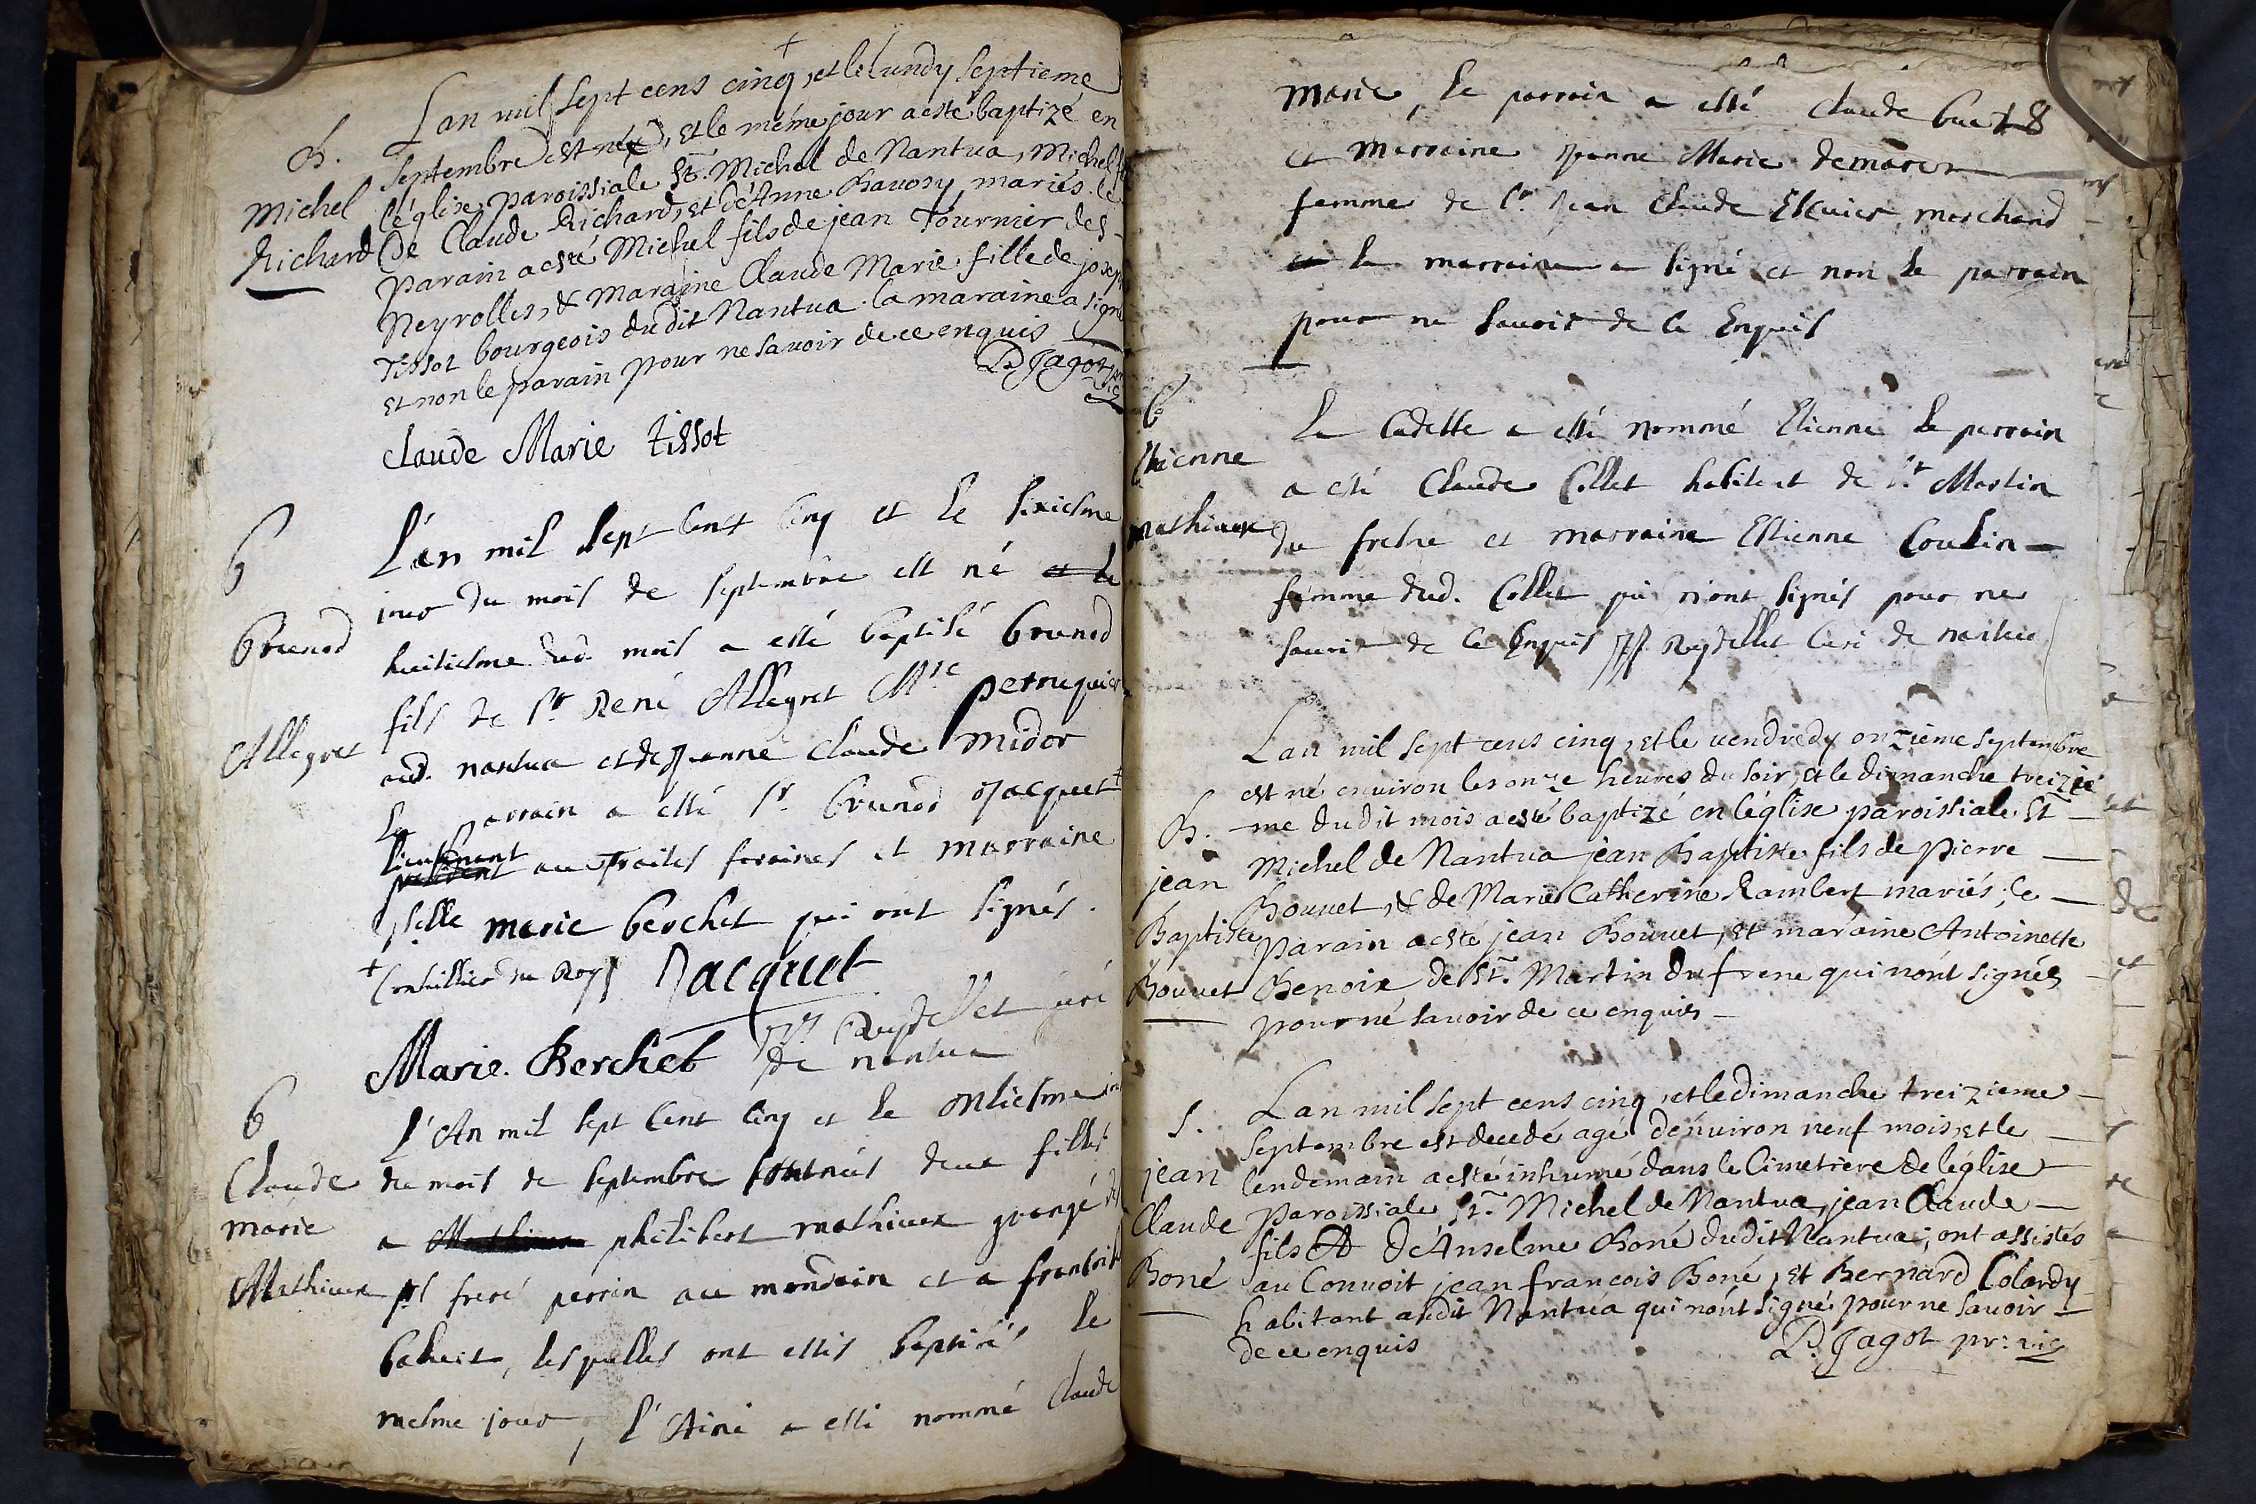 Lan mil sept cens cinq, et le lundy septieme
B. septembre est né, et le méme jour a esté baptizé en
Michel l'église paroissiale St. Michel de Nantua, Michel
Richard de Claude Richard, et d'Anne Bavozy mariés. le
parain a esté Michel fils de jean Tournier des
Neyrolles, & maraine Claude Marie fille de joseph
Tissot bourgeois dudit Nantua. la maraine a signé
et non le parain pour ne savoir de ce enquis
D. Jagot
Claude Marie tissot
B
L'an mil sept cent cinq et le sixiesme
jour du mois de septembre est né et le
Brunod huitiesme dud. mois a esté baptisé brunod
fils de Sr. René Allegret Mre perruquier
Allegret aud. nantua et de Jeanne Claude midor
Le parrain a esté Sr. brunod Jacquet +
lieutenant president aux traites foraines et marraine
dselle marie berchet qui ont signés.
+ Conseillier du Roy Jacquet
Marie. Berchet JM Reydellet curé
de nantua
B
L'An mil sept cent cinq et le onsiesme
Claude du mois de septembre sont nées deux filles
marie a philibert mathieux grangé
Mathieux frere perrin au mondain et a
lesquelles ont estés baptisés le
mesme jour, l'Ainé a esté nommé Claude
Marie, le parrain a esté Claude
et marraine Jeanne Marie demarer
femme de Sr. Jean Claude marchand
et la marraine a signé et non le parrain
pour ne savoir de ce Enquis
B
La Cadette a esté nommé Etienne le parrain
Etienne a esté Claude Collet habitant de St Martin
mathieux du fresne et marraine Estienne Cousin
femme dud. Collet qui n'ont signés pour ne
savoir de ce Enquis JM Reydellet Curé de nantua
Lan mil sept cens cinq, et le vendredy onzieme septembre
est né environ les onze heures du soir, et le dimanche treizie
B. me dudit mois a esté baptizé en l'église paroissiale St
jean Michel de Nantua jean Baptiste fils de pierre
Bouvet, & de Marie Catherine Rambert mariés; le
Baptiste parain a esté jean Bouvet, et maraine Antoinette
Bouvet Benoix de St. Martin du frene qui n'ont signés
pour ne savoir de ce enquis
Lan mil sept cens cinq, et le dimanche treizieme
S. septembre est decedé agé d'environ neuf mois, et le
jean lendemain a esté inhumé dans le Cimetiere de l'église
Claude paroissiale St. Michel de Nantua, jean Claude
fils d'Anselme Boné dudit Nantua; ont assistés
Boné au Convoit jean françois Boné, et Bernard Colardy
habitant audit Nantua qui n'ont signé pour ne savoir
de ce enquis D. Jagot pr: vic